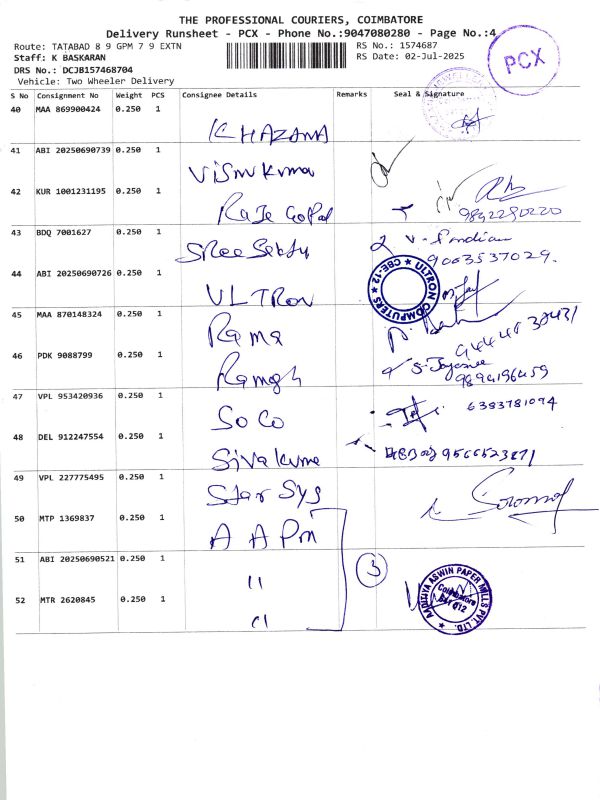 THE PROFESSIONAL COURIERS, COIMBATORE
Delivery Runsheet - PCX - Phone No.:9047080280 - Page No.:4
Route: TATABAD 8 9 GPM 7 9 EXTN
RS No.: 1574687
Staff: K BASKARAN
RS Date: 02-Jul-2025
DRS No.: DCJB157468704
Vehicle: Two Wheeler Delivery
PCX
S No Consignment No Weight PCS Consignee Details Remarks Seal & Signature
40 MAA 869900424 0.250 1
KHAZANA
41 ABI 20250690739 0.250 1
Visnu Kuma
42 KUR 1001231195 0.250 1
Raje Gopal
9842290220
43 BDQ 7001627 0.250 1
Sree Sekdy
V. Pandian
9003537029.
44 ABI 20250690726 0.250 1
ULTRON
ULTRON COMPUTERS
CBE-12
45 MAA 870148324 0.250 1
Rama
46 PDK 9088799 0.250 1
Ramesh
9894196459
47 VPL 953420936 0.250 1
SOCO
6383781074
48 DEL 912247554 0.250 1
Siva kume
9566523871
49 VPL 227775495 0.250 1
Star Sys
50 MTP 1369837 0.250 1
A A Pm
51 ABI 20250690521 0.250 1
"
3
52 MTR 2620845 0.250 1
"
AADITYA ASWIN PAPER MILLS PVT. LTD.
Coimbatore
641 012